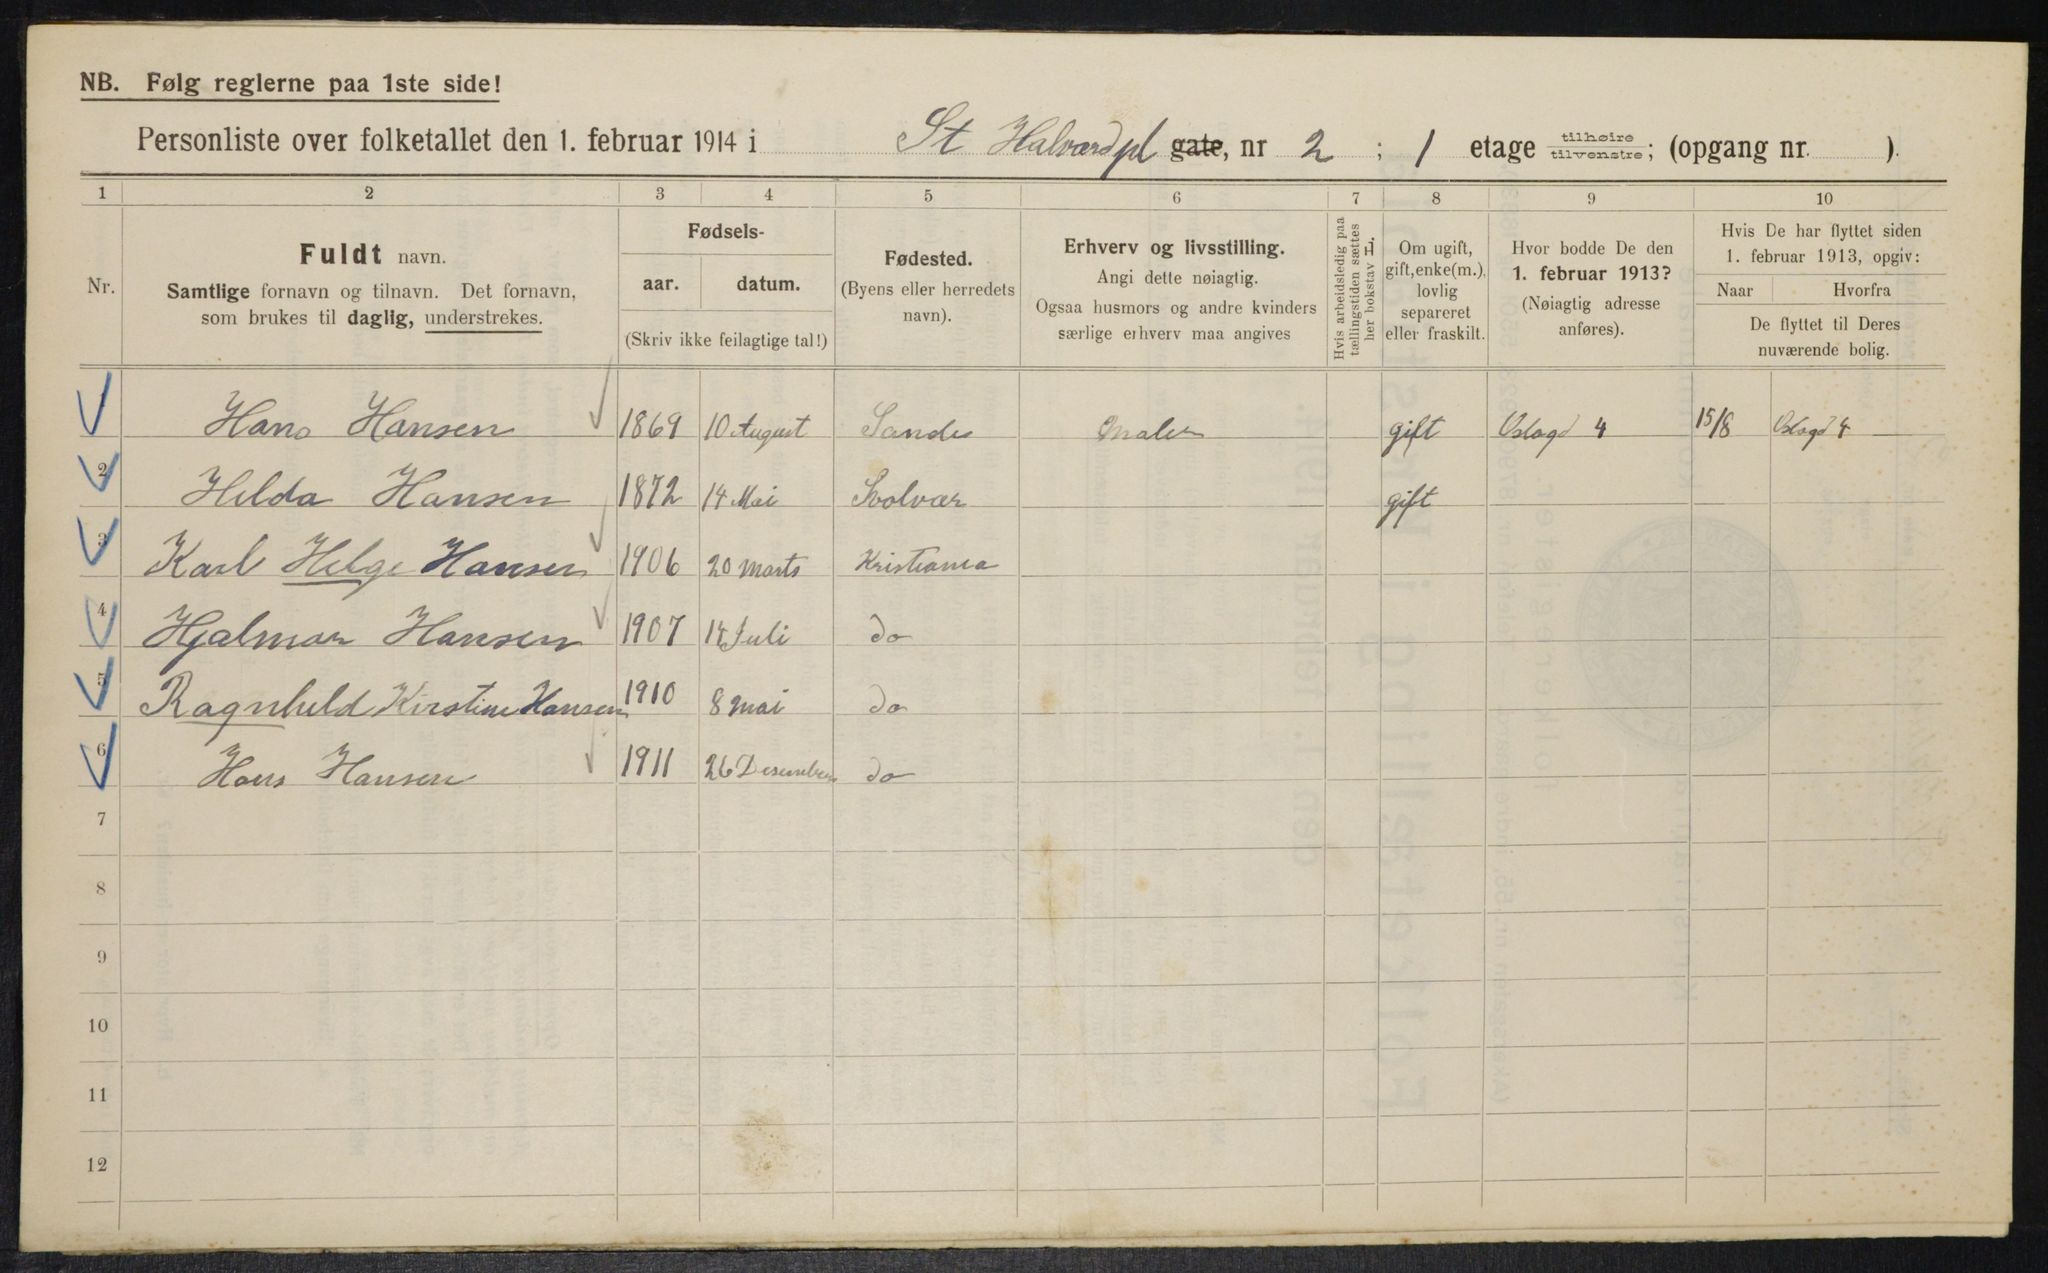 NB. Følg reglerne paa 1ste side!
Personliste over folketallet den 1. februar 1914 i St Halvardpl gate, nr 2 ; 1 etage tilhøire tilvenstre; (opgang nr. ).
1 2 3 4 5 6 7 8 9 10
Nr.
Fuldt navn.
Samtlige fornavn og tilnavn. Det fornavn,
som brukes til daglig, understrekes.
Fødsels-
aar. datum.
(Skriv ikke feilagtige tal!)
Fødested.
(Byens eller herredets
navn).
Erhverv og livsstilling.
Angi dette nøiagtig.
Ogsaa husmors og andre kvinders
særlige erhverv maa angives
Hvis arbeidsledig paa
tællingstiden sættes
her bokstav H.
Om ugift,
gift, enke(m.),
lovlig
separeret
eller fraskilt.
Hvor bodde De den
1. februar 1913?
(Nøiagtig adresse
anføres).
Hvis De har flyttet siden
1. februar 1913, opgiv:
Naar Hvorfra
De flyttet til Deres
nuværende bolig.
Hans Hansen 1869 10 August Sandes Maler gift Oslogd 4 15/8 Oslogd 4
2 Hilda Hansen 1872 14 Mai Svolvær gift
3 Karl Helge Hansen 1906 20 Marts Kristiania
4 Hjalmar Hansen 1907 14 Juli do
5 Ragnhild Kirstine Hansen 1910 8 Mai do
6 Hans Hansen 1911 26 Desember do
7
8
9
10
11
12